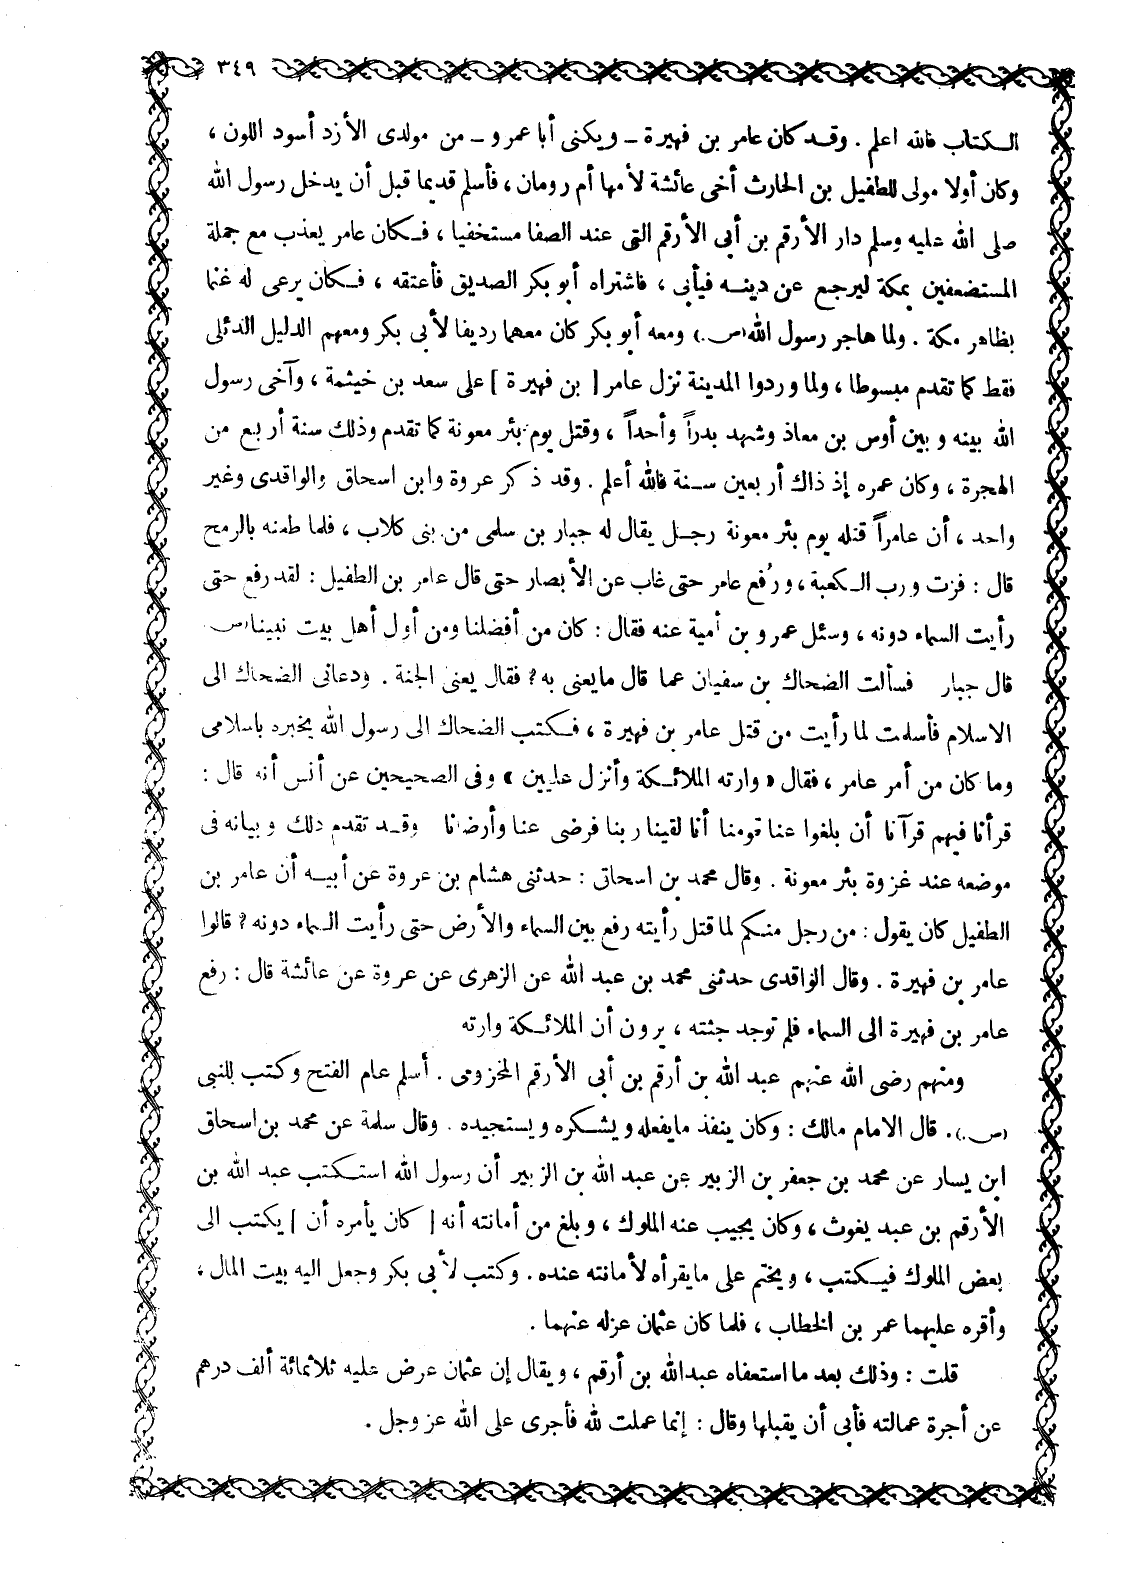 ٣٤٩
الكتاب فالله اعلم . وقد كان عامر بن فهيرة ـ ويكنى أبا عمرو ـ من مولدى الأزد أسود اللون ،
وكان أولا مولى للطفيل بن الحارث أخى عائشة لأمها أم رومان ، فأسلم قديما قبل أن يدخل رسول الله
صلى الله عليه وسلم دار الأرقم بن أبى الأرقم التى عند الصفا مستخفيا ، فكان عامر يعذب مع جملة
المستضعفين بمكة ليرجع عن دينه فيأبى ، فاشتراه أبو بكر الصديق فأعتقه ، فكان يرعى له غنما
بظاهر مكة . ولما هاجر رسول الله (ص.) ومعه أبو بكر كان معهما رديفا لأبى بكر ومعهم الدليل الدئلى
فقط كما تقدم مبسوطا ، ولما وردوا المدينة نزل عامر [ بن فهيرة ] على سعد بن خيثمة ، وآخى رسول
الله بينه وبين أوس بن معاذ وشهد بدراً وأحداً ، وقتل يوم بئر معونة كما تقدم وذلك سنة أربع من
الهجرة ، وكان عمره إذ ذاك أربعين سنة فالله أعلم . وقد ذكر عروة وابن اسحاق والواقدى وغير
واحد ، أن عامراً قتله يوم بئر معونة رجل يقال له جبار بن سلمى من بنى كلاب ، فلما طعنه بالرمح
قال : فزت ورب الكعبة ، ورُفع عامر حتى غاب عن الأبصار حتى قال عامر بن الطفيل : لقد رفع حتى
رأيت السماء دونه ، وسئل عمرو بن أمية عنه فقال : كان من أفضلنا ومن أول أهل بيت نبينا (ص.
قال جبار فسألت الضحاك بن سفيان عما قال ما يعنى به ؟ فقال يعنى الجنة . ودعانى الضحاك الى
الاسلام فأسلمت لما رأيت من قتل عامر بن فهيرة ، فكتب الضحاك الى رسول الله يخبره باسلامى
وما كان من أمر عامر ، فقال « وارته الملائكة وأنزل عليين » وفى الصحيحين عن أنس أنه قال :
قرأنا فيهم قرآنا أن بلغوا عنا قومنا أنا لقينا ربنا فرضى عنا وأرضانا وقد تقدم ذلك وبيانه فى
موضعه عند غزوة بئر معونة . وقال محمد بن اسحاق : حدثنى هشام بن عروة عن أبيه أن عامر بن
الطفيل كان يقول : من رجل منكم لما قتل رأيته رفع بين السماء والأرض حتى رأيت السماء دونه ؟ قالوا
عامر بن فهيرة . وقال الواقدى حدثنى محمد بن عبد الله عن الزهرى عن عروة عن عائشة قال : رفع
عامر بن فهيرة الى السماء فلم توجد جثته ، يرون أن الملائكة وارته
ومنهم رضى الله عنهم عبد الله بن أرقم بن أبى الأرقم المخزومى . أسلم عام الفتح وكتب للنبى
(ص.). قال الامام مالك : وكان ينفذ ما يفعله ويشكره ويستجيده . وقال سلمة عن محمد بن اسحاق
ابن يسار عن محمد بن جعفر بن الزبير عن عبد الله بن الزبير أن رسول الله استكتب عبد الله بن
الأرقم بن عبد يغوث ، وكان يجيب عنه الملوك ، وبلغ من أمانته أنه [ كان يأمره أن ] يكتب الى
بعض الملوك فيكتب ، ويختم على ما يقرأه لأمانته عنده . وكتب لأبى بكر وجعل اليه بيت المال ،
وأقره عليهما عمر بن الخطاب ، فلما كان عثمان عزله عنهما .
قلت : وذلك بعد ما استعفاه عبدالله بن أرقم ، ويقال إن عثمان عرض عليه ثلاثمائة ألف درهم
عن أجرة عمالته فأبى أن يقبلها وقال : إنما عملت لله فأجرى على الله عز وجل .